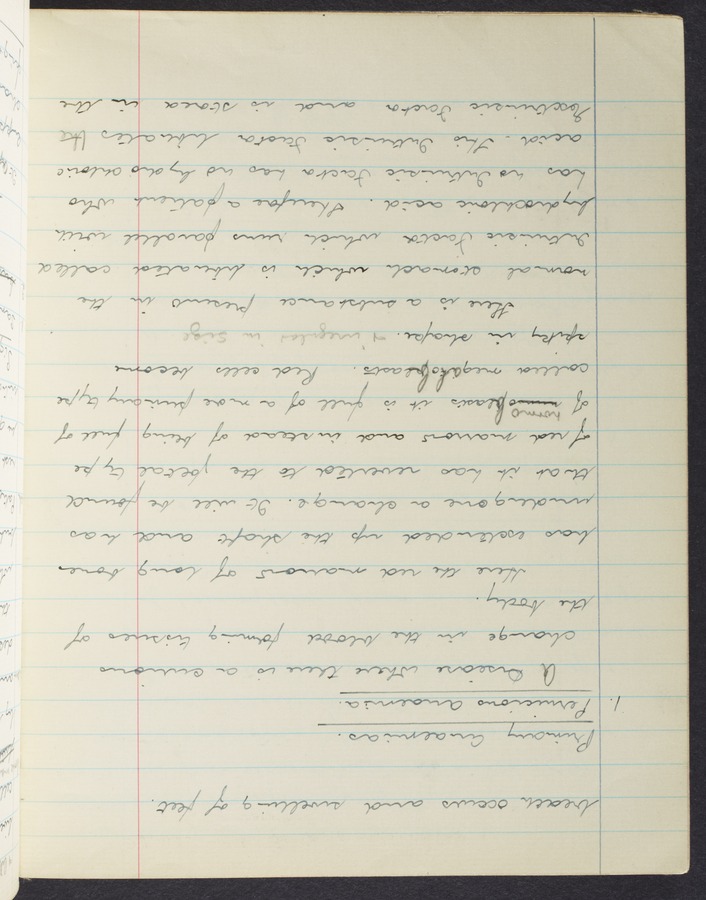 breath occurs and swelling of feet.
Primary Anaemias.
1. Pernicious Anaemia.
A Disease where there is a curious
change in the blood forming tissues of
the body.
Here the red marrow of long bones
has extended up the shaft and has
undergone a change. It will be found
that it has reverted to the foetal type
of red marrow and instead of being full of
of normoblasts it is full of a more primary type
called megaloblasts. Red cells become
spiky in shape. & irregular in size
There is a substance present in the
normal stomach which is liberated called
Intrinsic Factor which runs parallel with
hydrochloric acid. Therefore a patient who
has no Intrinsic Factor has no hydrochloric
acid. This Intrinsic Factor liberates the
Extrinsic Factor and is stored in the